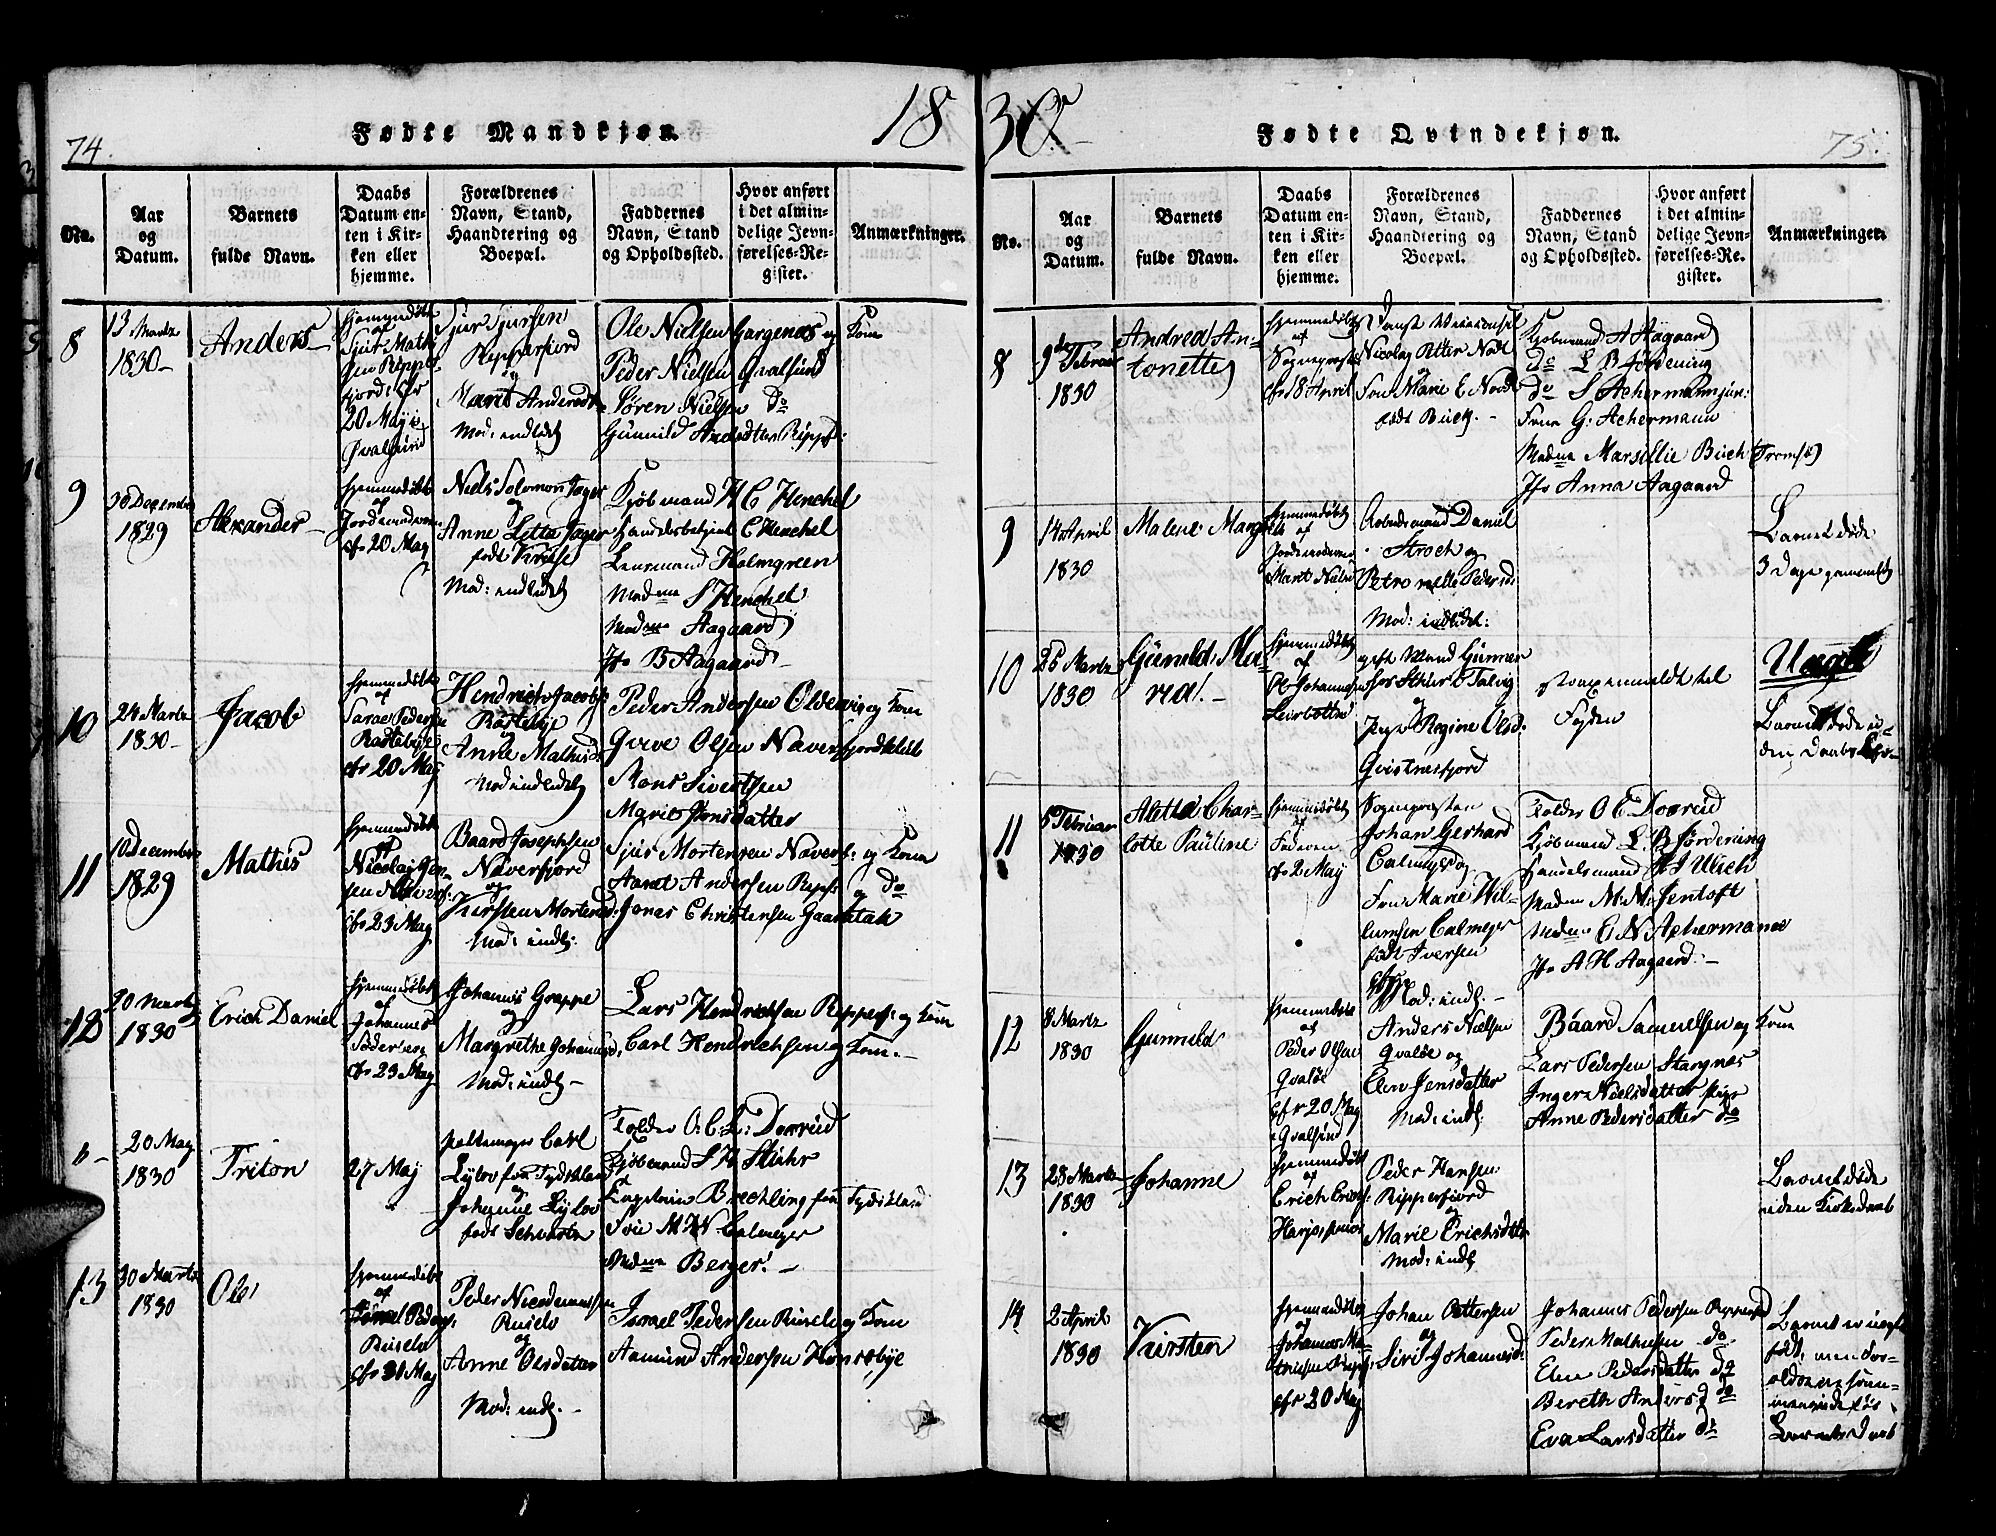 74.
Fødte Mandkjøn.
18
No.
Aar
og
Datum.
Barnets
fulde Navn.
Daabs
Datum en-
ten i Kir-
ken eller
hjemme.
Forældrenes
Navn, Stand,
Haandtering og
Boepæl.
Faddernes
Navn, Stand
og Opholdssted.
Hvor anført
i det almin-
delige Jevn-
førelses-Re-
gister.
Anmærkninger.
8
13 Martz
1830-
Anders
Hjemmedøbt
af
20 Maj i
Qvalsund
Sjur Sjursen
Repperfjord
og
Marit Andersd
Mod: indledet
Ole Nielsen Gargenæs og Kone
Peder Nielsen Qvalsund
Søren Nielsen do
Gunnild Andsdtter Rippf:
9
30 December
1829
Alexander
Hjemmedøbt
af
Jordemoderen
Cfr 20 Maj
Niels Solomon Jager
og
Anne Letta Jager
født Kruse
Mod: indledet
Kjøbmand H C Henckel
Handelsbetjent C Henckel
Lensmand Holmgreen
Madme S Henckel
Madme Aagaard
Jfr B Aagaard
10
24 Martz
1830-
Jacob
Hjemmedøbt
af
Sarae Peders
Rastebye
cfr 20 Maj
Hendrich Jacobs
Rastebye
og
Anne Mathisd:
Mod indledet
Peder Andersen Oldervig og Kone
Qvive Olsen Naverfjord
Mons Sivertsen
Marit Jonsdatter
11
10 December
1829
Mathis
Hjemmedøbt
af
Nicolai Jen-
sen Naverf:
Cfr 23 Maj
Baard Josephsen
Naverfjord
og
Kirsten Mortensd:
Mod: indl:
Sjur Mortensen Naverf: og Kone
Aamot Andersen Repf: og do
Jonas Christensen Gaasletak
12
20 Martz
1830
Erich Daniel
Hjemmedøbt
af
Johannes
Cfr 23 Maj
Johannes Grappe
og
Margrethe Johannesd
Mod: indl-
Lars Hendrichsen Repperf: og Kone
Carl Hendrichsen og Kone.-
20 Maj
1830
Triton
27 Maj
Carl
Lylov fra Tydskland
og
Johanne Lylov
født Schwartz
Tolder O: C: L: Doorud
Kjøbmand S H Stuhr
Captein Brechling fra Tydskland
Frue M W Calmeyer
Madme Berger!-
13
30 Martz
1830
Ole
Hjemmedøbt
af
Israel Peders:
Ruselv
Cfr 31 Maj
Peder Nicodemussen
Ruselv
og
Anne Olsdatter
Mod: indl.-
Israel Pedersen Ruselv og Kone
Aamund Andersen Hønsebye
30
Fødte Qvindekjøn.
75.
No.
Aar
og
Datum.
Barnets
fulde Navn.
Daabs
Datum en-
ten i Kir-
ken eller
hjemme.
Forældrenes
Navn, Stand,
Haandtering og
Boepæl.
Faddernes
Navn, Stand
og Opholdssted.
Hvor anført
i det almin-
delige Jevn-
førelses-Re-
gister.
Anmærkninger.
8
9de Februar
1830
Andrea An-
tonette
Hjemmedøbt
af
Sognepræsten
cfr 8 April
Nicolay Petter Noel
og
Frue Marie E Noel
født Buck.-
Kjøbmand A Aagaard
do L B Førdening
do S Achermann jun:
Frue G: Achermann
Madme Marsillie Buch Tromsø
Jfr Anna Aagaard
9
14 April
1830
Malene Margrete
Hjemmedøbt
af
Jordemoderen
Marit Nielsd
Arbeidsmand Daniel
Stroch og
Petronelle Pedersd:
Mod: indledet:
Barnet døde
3 Dage gammel
10
25 Martz
1830
Gunild: Ma-
rea!-
Hjemmedøbt
af
Ol Johannesen
Leirbotten
gift Mand Gunner
i Talvig
og
Pige Regine Olsd:
Qvistnesfjord
til
Fogden
Uægte
Barnet døde
uden Daab
11
5 Februar
1830
Aletta Char-
lotte Pauline
Hjemmedøbt
af
Faderen
cfr 2 Maj
Sognepræsten
Johan Gerhard
Calmeyer og
Frue Marie Wil-
lumsen Calmeyer
født Iversen
Mod: indl.-
Tolder O C Doorud
Kjøbmand L B Førdening
Handelsmand H J Ulich
Madme M: M: Jentoft
Madme E N Achermann
Jfr A H Aagaard.-
12
8 Martz
1830
Gunnild
Hjemmedøbt
af
Peder Olsen
Qvaløe
Cfr 20 Maj
i Qvalsund
Anders Nielsen
Qvaløe og
Elen Jensdatter
Mod: indl:
Baard Samuelsen og Kone
Lars Pedersen Stargnes
Inger Nielsdatter pige
Anne Pedersdatter do
13
28 Martz
1830
Johanne
Hjemmedøbt
af
Erich Erichs:
Peder Hansen
Ripperfjord
og
Marie Erichsdatter
Mod: indl
Barnet døde
uden Kirkedaab
14
2 April
1830
Kirsten
Hjemmedøbt
af
Johannes Ma-
thisen Ripf:
cfr 20 Maj
Johan Pettersen
og
Siri Johannesd:
Johannes Pedersen Repperfd
Peder Mathisen do
Elen Pedersdatter do
Bereth Andersd do
Eva Larsdatter do
Barnet er uægte
født, men For-
ældrene
før
Barnets Daab